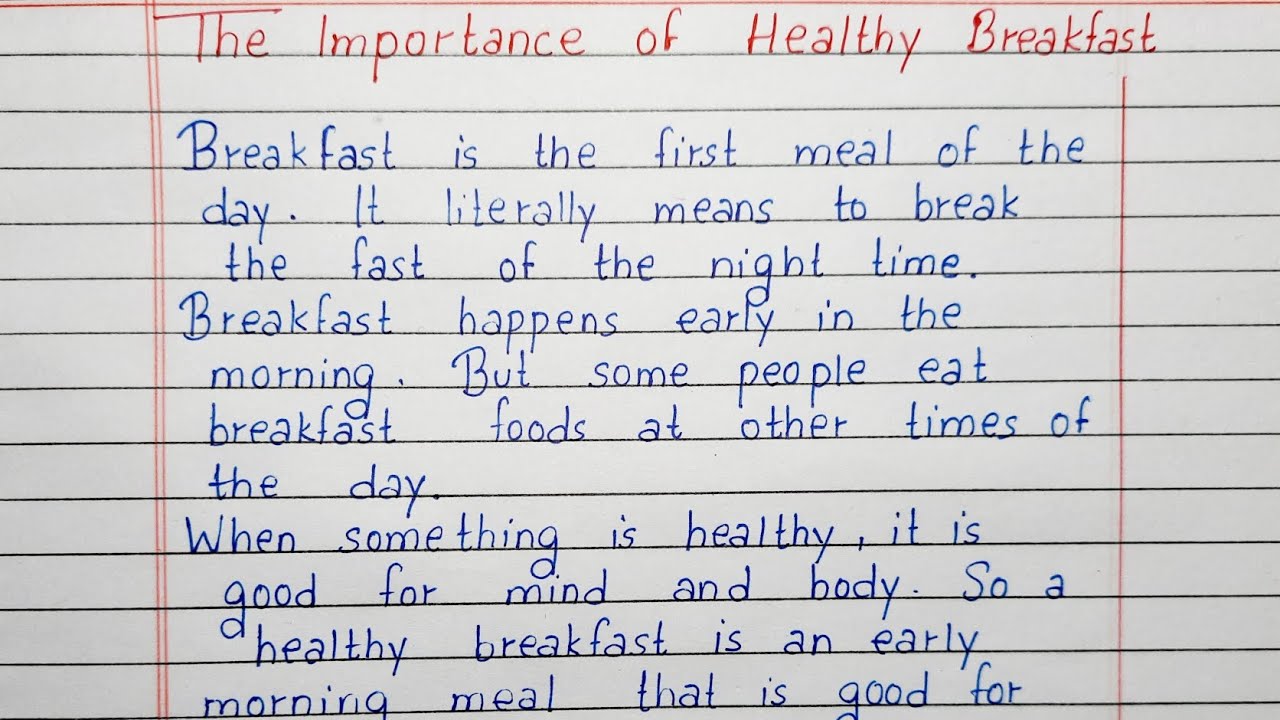 The Importance of Healthy Breakfast
Breakfast is the first meal of the
day. It literally means to break
the fast of the night time.
Breakfast happens early in the
morning. But some people eat
breakfast foods at other times of
the day.
When something is healthy, it is
good for mind and body. So a
healthy breakfast is an early
morning meal that is good for